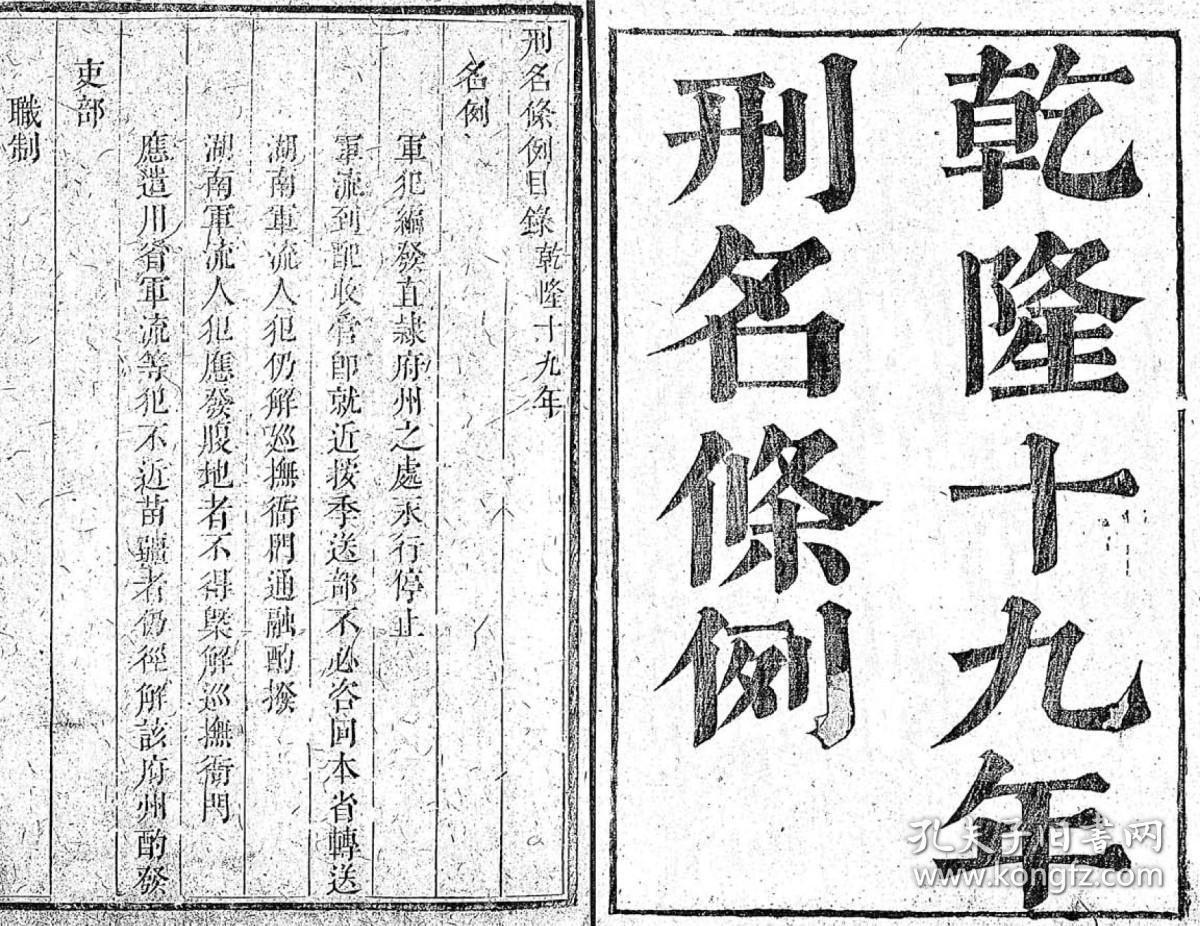 乾隆十九年
刑名條例
刑名條例目錄乾隆十九年
名例
軍犯編發直隷府州之處永行停止
軍流到配收管卽就近按季送部不必咨回本省轉送
湖南軍流人犯仍解廵撫衙門通融酌撥
湖南軍流人犯應發腹地者不得槩解巡撫衙門
應遣川省軍流等犯不近苗疆者仍徑解該府州酌發
吏部
職制
孔夫子旧书网
www.kongfz.com